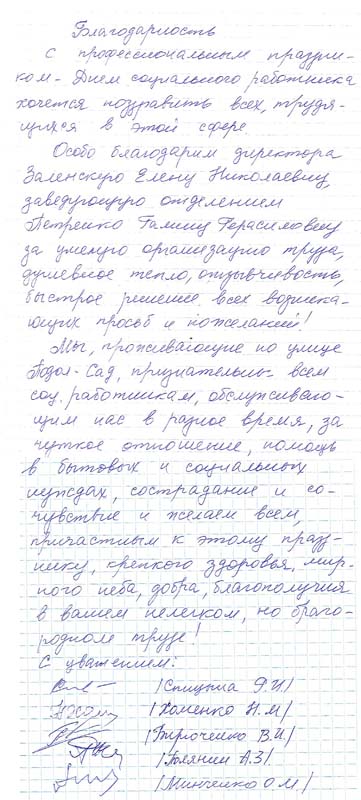 Благодарность
С профессиональным праздни-
ком - Днем социального работника
хочется поздравить всех, трудя-
щихся в этой сфере.
Особо благодарим директора
Заленскую Елену Николаевну,
заведующую отделением
Петренко Галину Герасимовну
за умелую организацию труда,
душевное тепло, отзывчивость,
быстрое решение всех возника-
ющих просьб и пожеланий!
Мы, проживающие по улице
Подол-Сад, признательны всем
соц. работникам, обслуживаю-
щим нас в разное время, за
чуткое отношение, помощь
в бытовых и социальных
нуждах, сострадание и со-
чувствие и желаем всем,
причастным к этому празд-
нику, крепкого здоровья, мир-
ного неба, добра, благополучия
в вашем нелегком, но благо-
родном труде!
С уважением:
/Спицына Э.И/
/Хоменко Н.М/
/В.И/
/А.З/
/Минченко О.М/